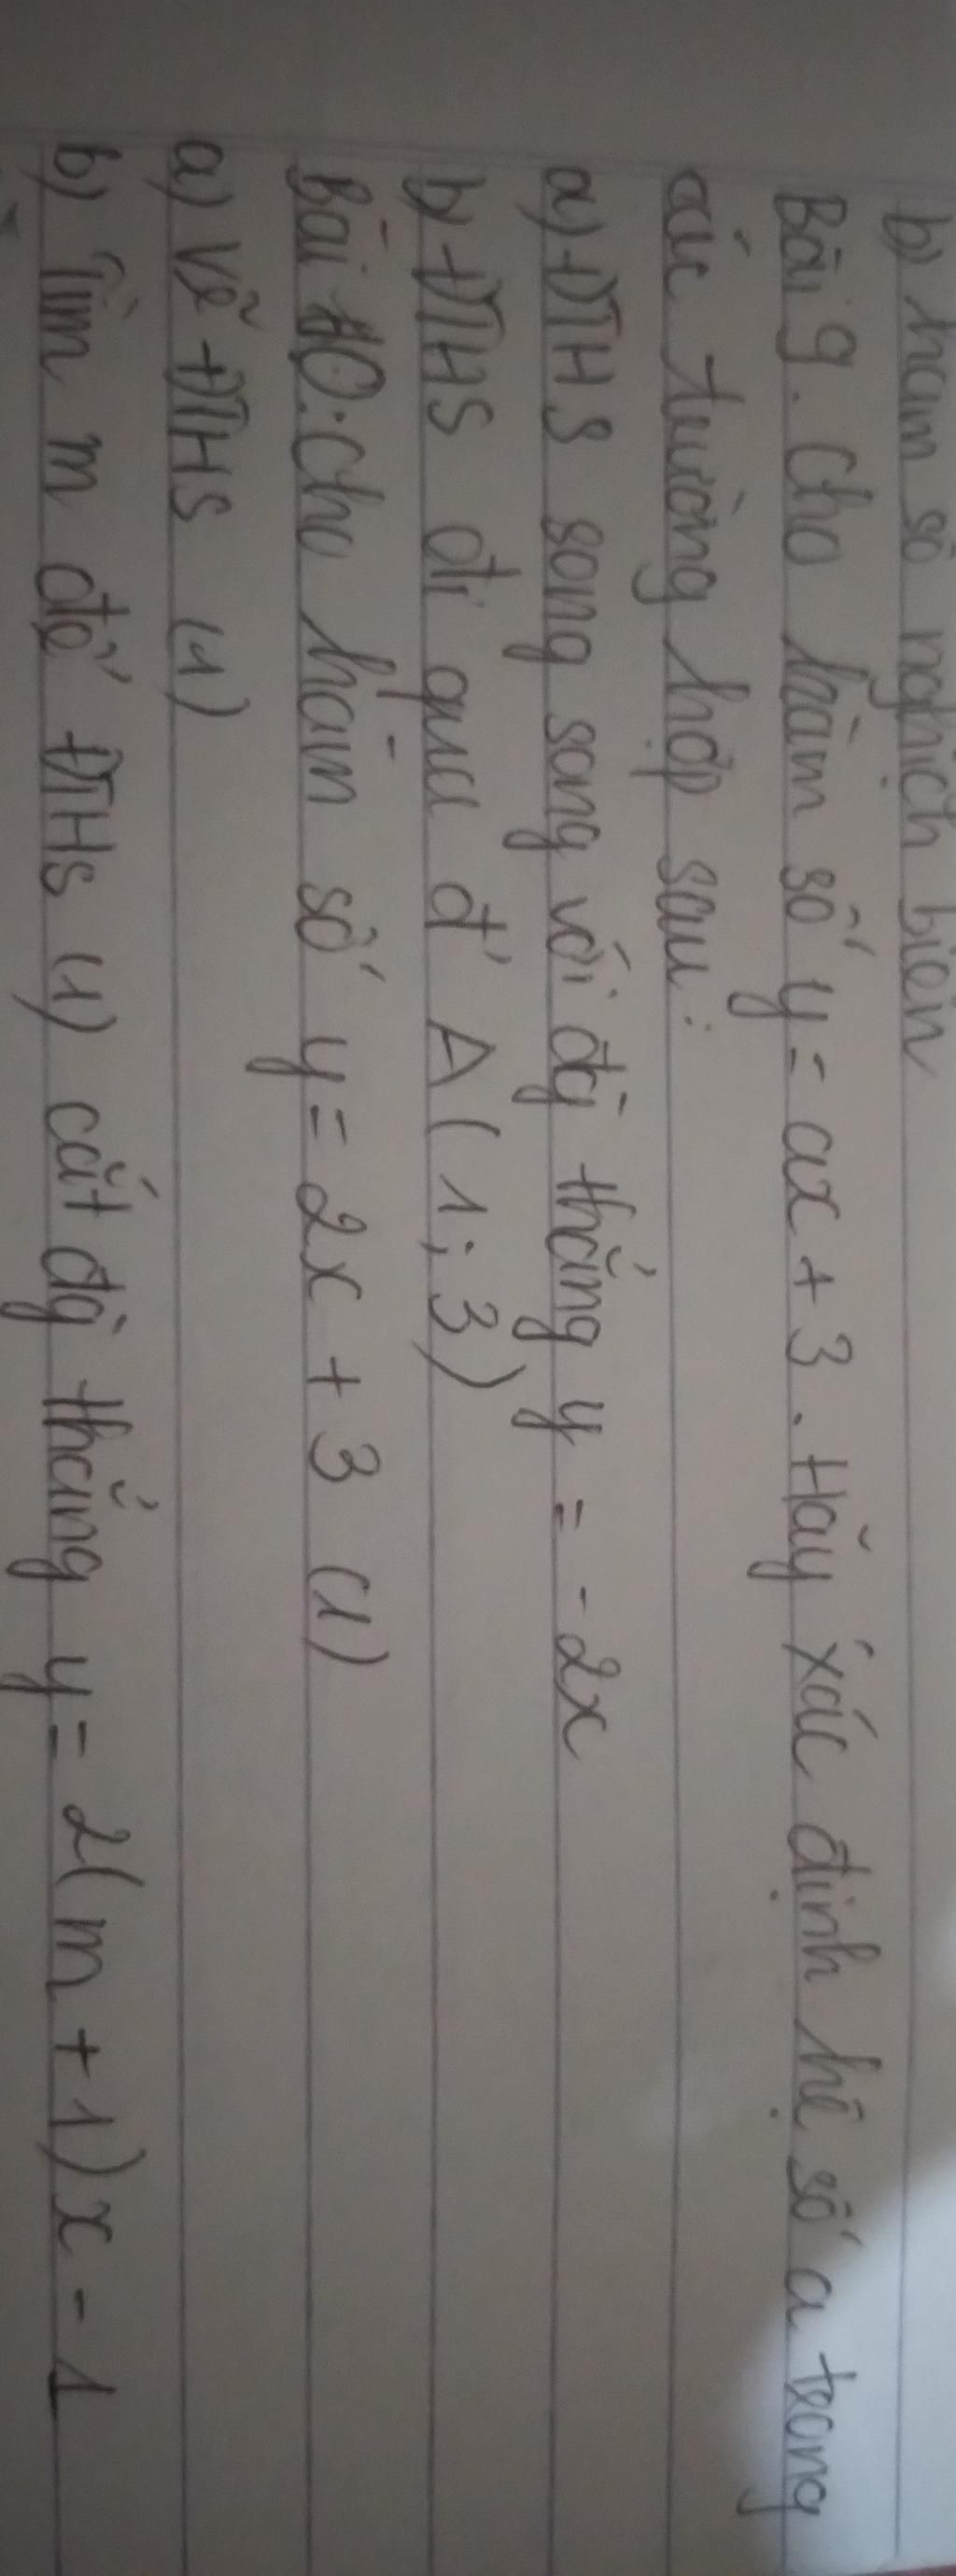 b) hàm số nghịch biến
Bài 9. Cho hàm số y = ax + 3. Hãy xác định hệ số a trong
các trường hợp sau:
a) ĐTHS song song với đg thẳng y = -2x
b) ĐTHS đi qua đ' A (1; 3)
Bài 10: Cho hàm số y = 2x + 3 (1)
a) Vẽ ĐTHS (1)
b) Tìm m để ĐTHS (1) cắt đg thẳng y = 2(m + 1)x - 1